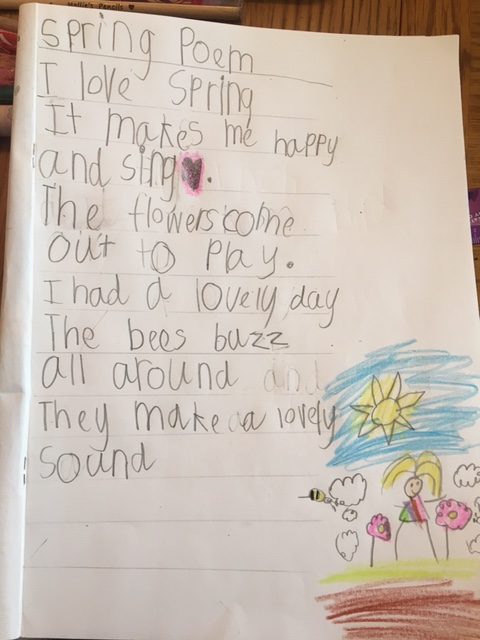 Hollie's Pencils
Spring Poem
I love Spring
It makes me happy
and sing♥.
The flowers come
out to play.
I had a lovely day
The bees buzz
all around and
They make a lovely
sound